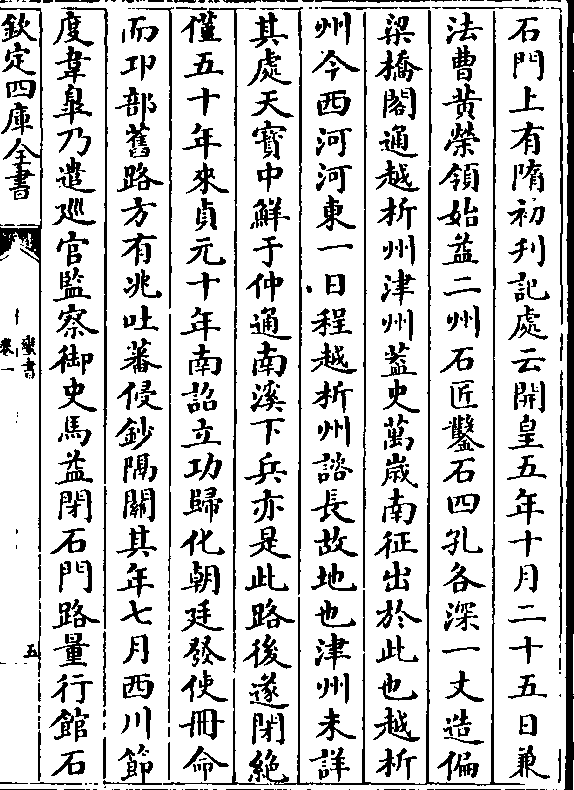 石門上有隋初刋記處云開皇五年十月二十五日兼
法曹黄榮領始益二州石匠鑿石四孔各深一丈造偏
梁橋閣通越析州津州葢史萬歲南征出於此也越析
州今西河河東一日程越析州諮長故地也津州未詳
其處天寶中鮮于仲通南溪下兵亦是此路後遂閉絶
僅五十年來貞元十年南詔立功歸化朝廷發使冊命
而卭部舊路方有兆吐蕃侵鈔隔關其年七月西川節
度韋臯乃遣廵官監察御史馬益閉石門路量行館石
欽定四庫全書
蠻書
卷一
五